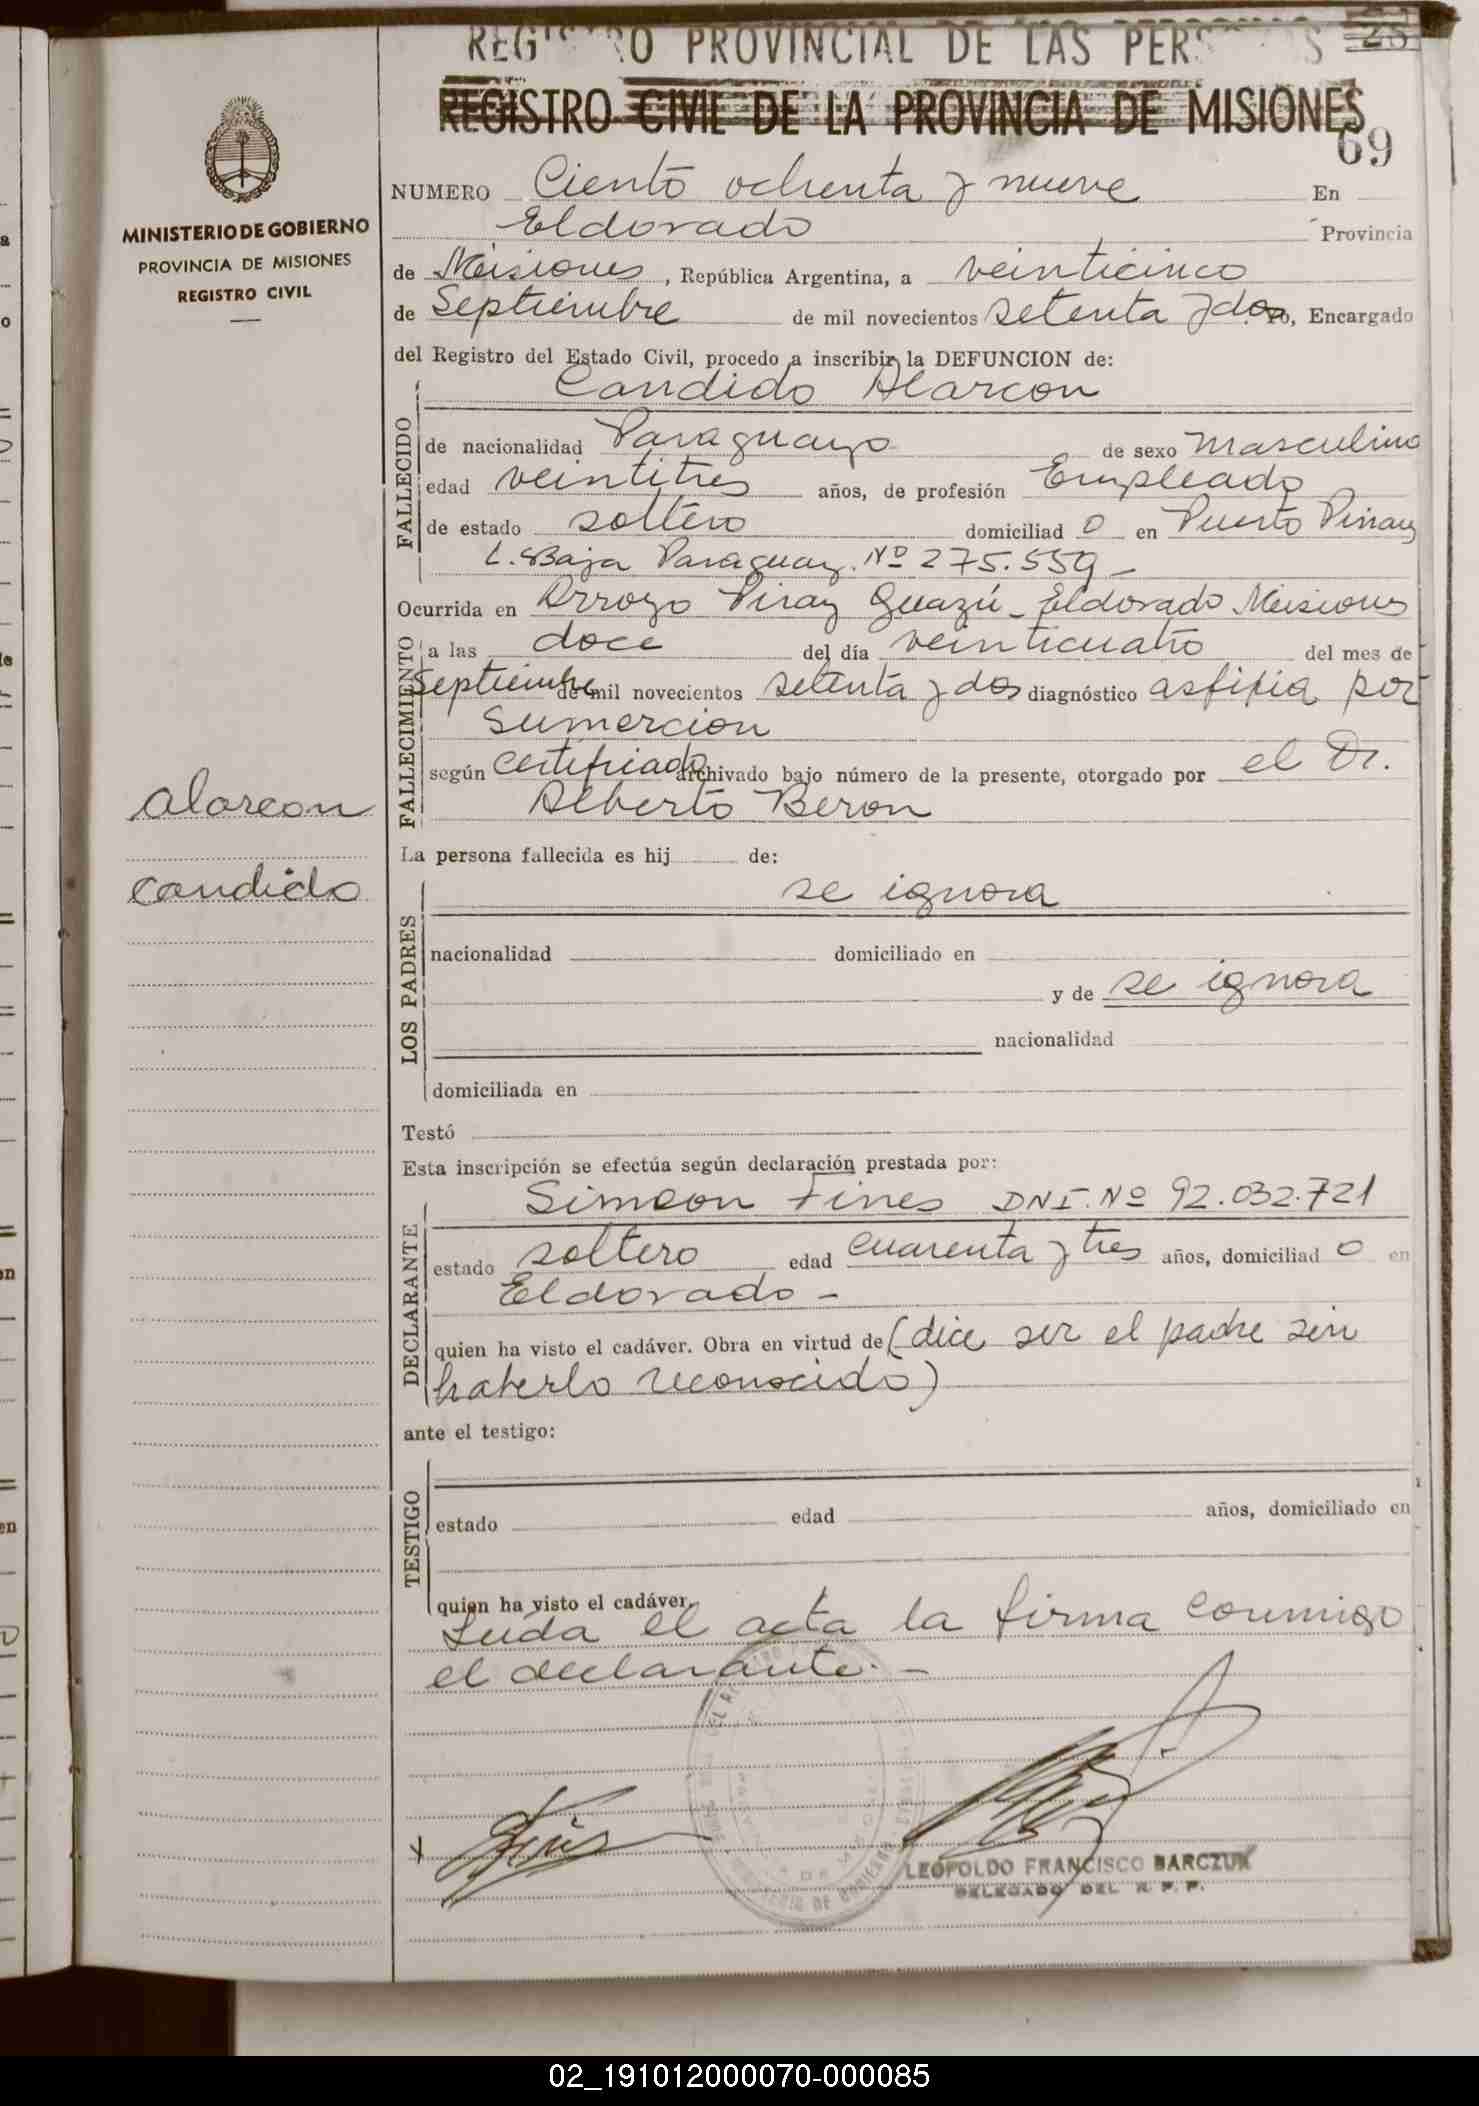 REGISTRO PROVINCIAL DE LAS PERSONAS
REGISTRO CIVIL DE LA PROVINCIA DE MISIONES
69
MINISTERIO DE GOBIERNO
PROVINCIA DE MISIONES
REGISTRO CIVIL
NUMERO Ciento ochenta y nueve En
Eldorado Provincia
de Misiones, República Argentina, a veinticinco
de Septiembre de mil novecientos setenta y dos. Yo, Encargado
del Registro del Estado Civil, procedo a inscribir la DEFUNCION de:
Candido Alarcon
FALLECIDO
de nacionalidad Paraguayo de sexo Masculino
edad veintitres años, de profesión Empleado
de estado soltero domiciliad o en Puerto Piray
L. Baja Paraguay. Nº 275.559-
Ocurrida en Arroyo Piray Guazú - Eldorado Misiones
FALLECIMIENTO
a las doce del día veinticuatro del mes de
Septiembre de mil novecientos setenta y dos diagnóstico asfixia por
sumercion
según certificado archivado bajo número de la presente, otorgado por el Dr.
Alberto Beron
Alarcon
Candido
La persona fallecida es hij de:
LOS PADRES
se ignora
nacionalidad domiciliado en
y de se ignora
nacionalidad
domiciliada en
Testó
Esta inscripción se efectúa según declaración prestada por:
DECLARANTE
Simeon Fines DNI. Nº 92.032.721
estado soltero edad cuarenta y tres años, domiciliad o en
Eldorado -
quien ha visto el cadáver. Obra en virtud de (dice ser el padre sin
haberlo reconocido)
ante el testigo:
TESTIGO
estado edad años, domiciliado en
quien ha visto el cadáver.
Leida el acta la firma conmigo
el declarante. -
LEOPOLDO FRANCISCO BARCZUK
DELEGADO DEL R. P. P.
02_191012000070-000085